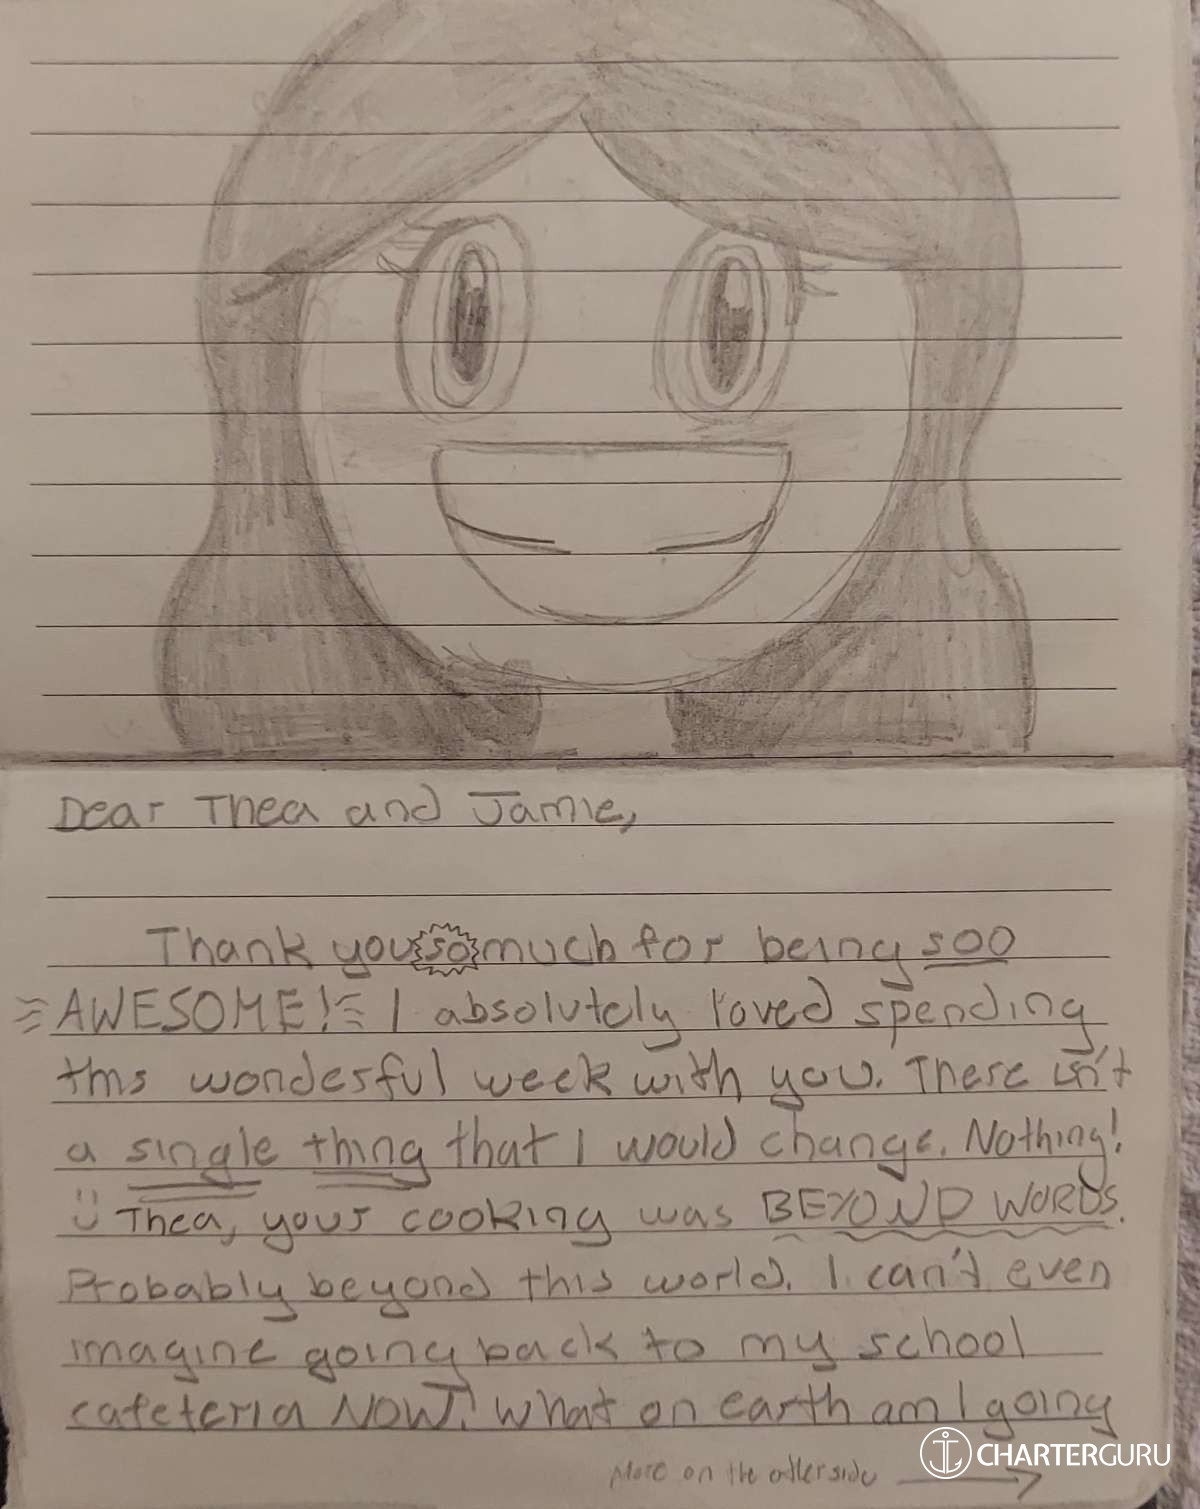 Dear Thea and Jamie,
Thank you so much for being soo
AWESOME! I absolutely loved spending
this wonderful week with you. There isn't
a single thing that I would change. Nothing!
Thea, your cooking was BEYOND WORDS.
Probably beyond this world. I can't even
imagine going back to my school
cafeteria NOW! What on earth am I going
More on the other side
CHARTERGURU